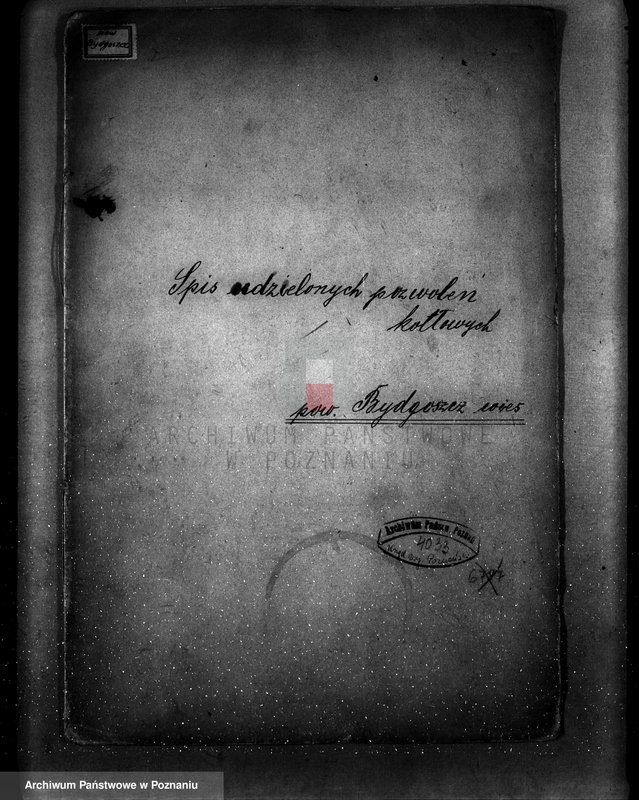 pow
Bydgoszcz
Spis udzielonych pozwoleń
kotłowych
pow. Bydgoszcz wieś
ARCHIWUM PAŃSTWOWE
W POZNANIU
Archiwum Państw. Poznań
4033
Archiwum Państwowe w Poznaniu